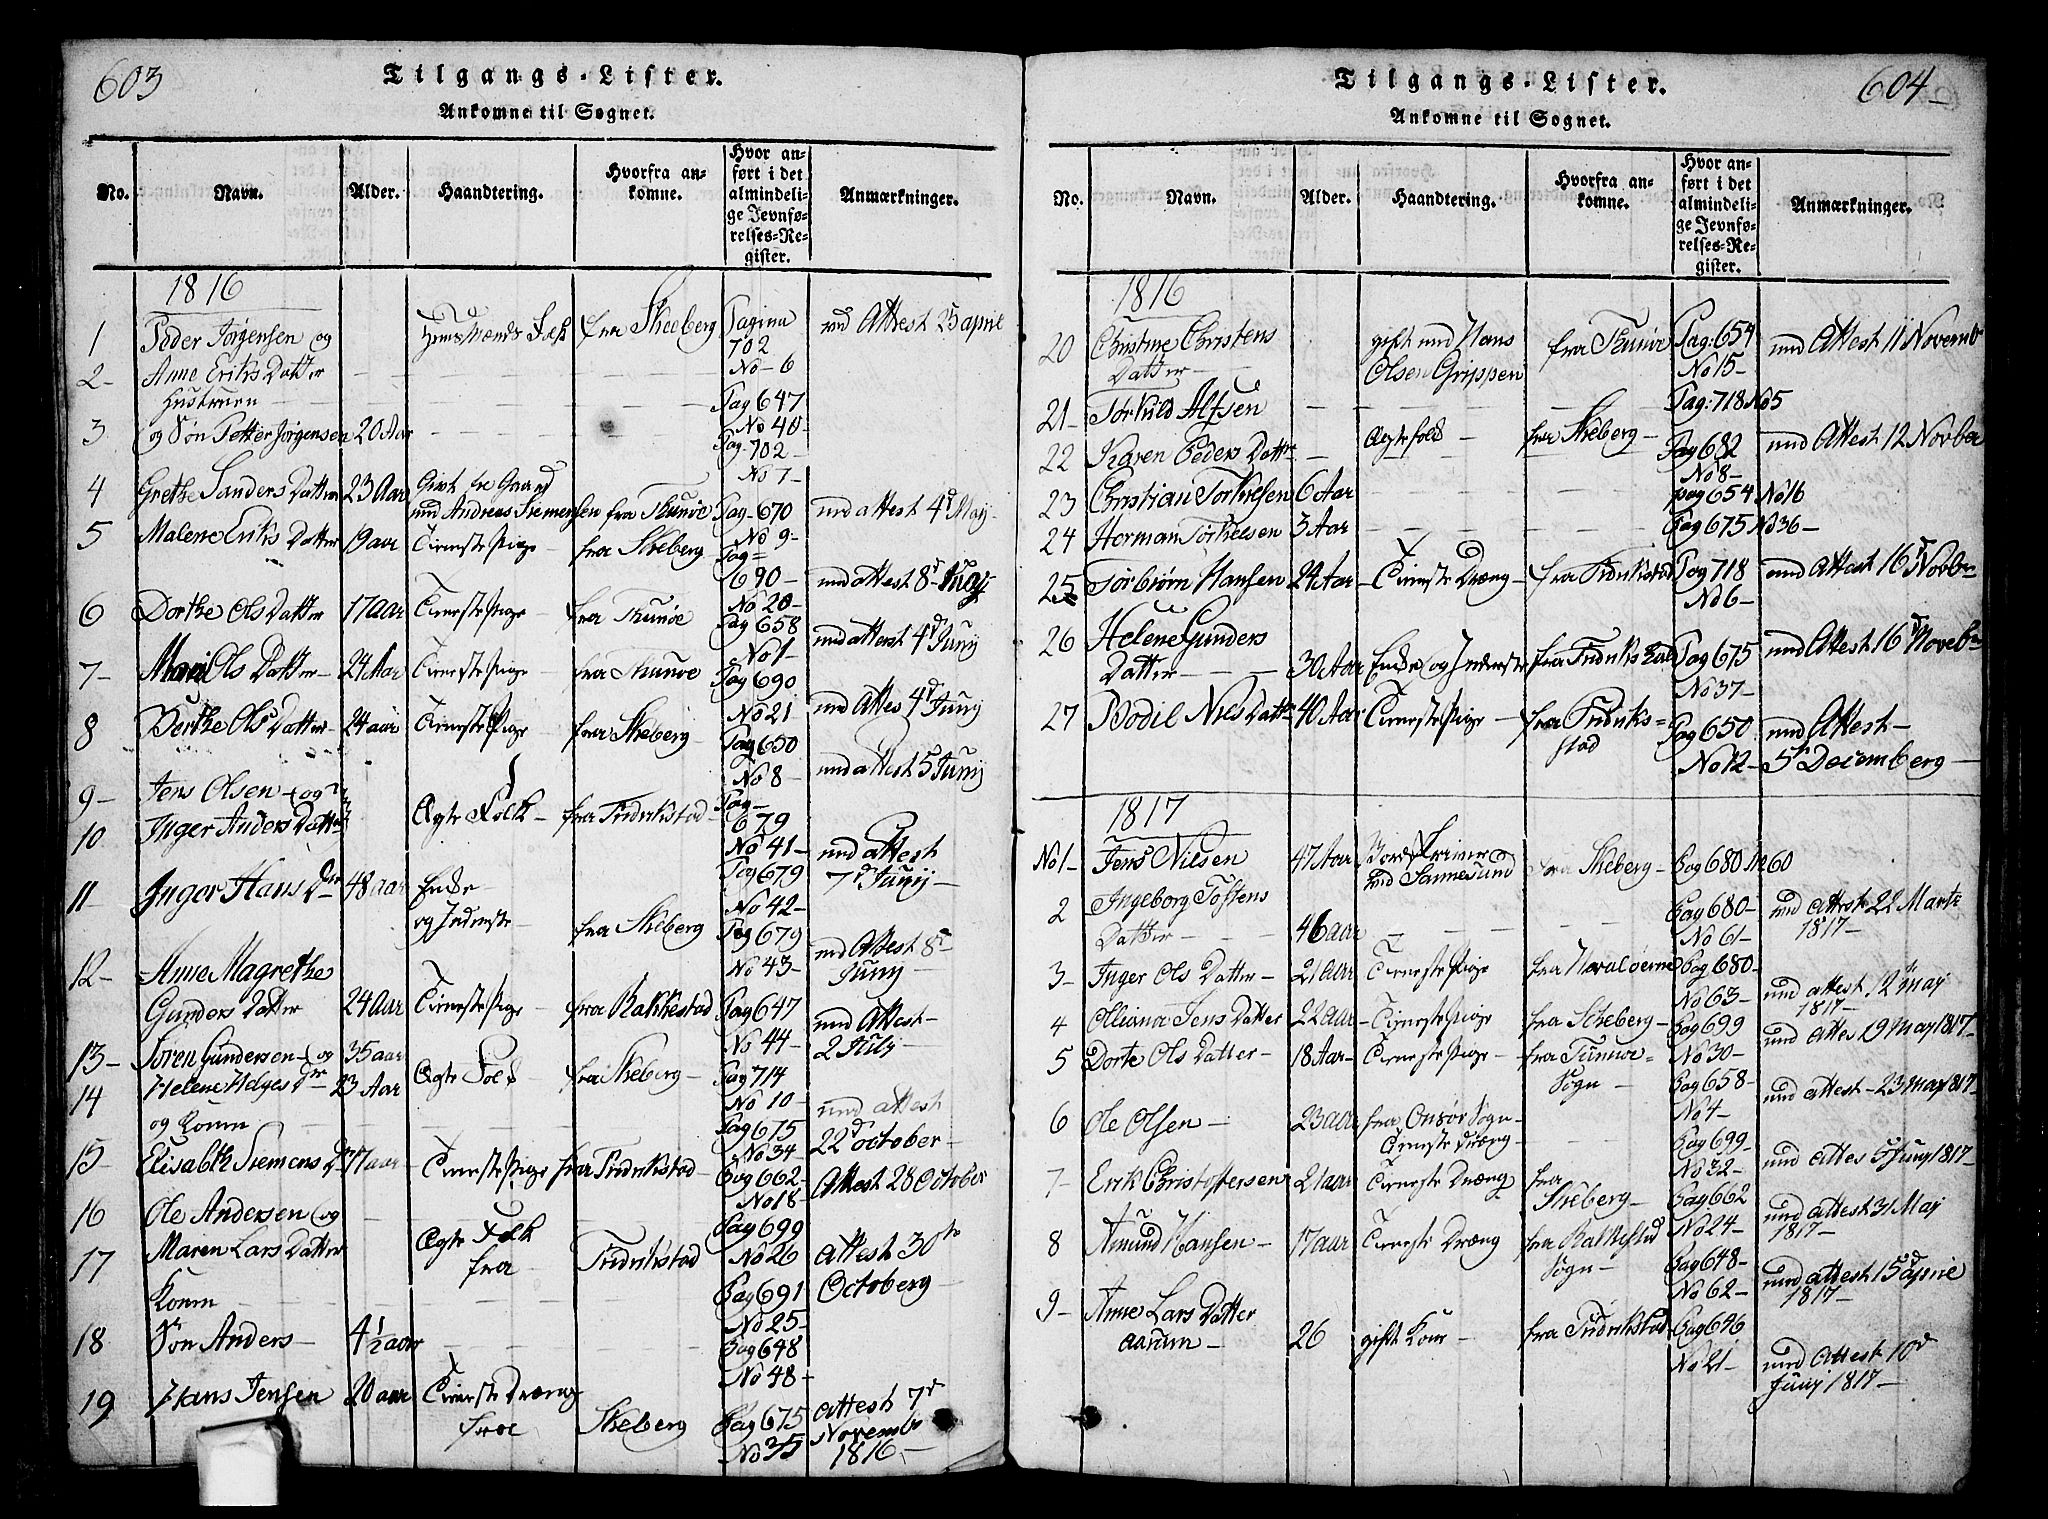 603
Tilgangs-Lister.
Ankomne til Sognet.
No. Navn. Alder. Haandtering. Hvorfra ankomne. Hvor anført i det almindelige Jevnførelses-Register. Anmærkninger.
1816
1 Peder Jørgensen og Huusmands Folk fra Skeeberg Pagina 702 No-6 md Attest 25 april
2- Anne Eriks Datter Hustruen Pag 647 No 40-
3 og Søn Petter Jørgensen 20 Aar Pag-702- No 7-
4 Grethe Sanders Datter 23 Aar Givt til Gaard md Andreas Siemensen fra Thunøe Pag-670 No 9- md attest 4d May-
5 Malene Eriks Datter 19 aar Tieneste Pige- fra Skeberg Pag= 690- No 20- md attest 8d Juny
6 Dorthe Ols Datter 17 aar Tieneste Pige fra Thunøe Pag 658 No 1- md attest 4d Juny
7- Mari Ols Datter- 24 Aar Tieneste Pige fra Thunøe Pag 690 No 21 md Attes 4d Juny
8 Berthe Ols Datter- 24 aar Tieneste Pige fra Skeberg- Pag 650 No 8- md attest 5d Juny
9- Jens Olsen- og
10 Inger Anders Datter Ægte Folk- fra Fridrikstad- Pag- 679 No 41- Pag 679 No 42- md attest 7d Junij-
11 Inger Hans Dtr 48 aar Enke- og Inderste- fra Skeberg Pag 679 No 43- md Attest 8d Juny
12- Anne Magrethe Gunders Datter 24 Aar Tieneste Pige- fra Rakkestad Pag 647 No 44- md Attest- 2 July-
13- Søren Gundersen- og 35 aar Ægte Folk fra Skeberg- Pag 714 No 10- md attest
14 Helene Helges Dtr og Konen 23 Aar Pag 675 No 34- 22d october-
15- Elisabth Siemens D 17 aar- Tieneste Pige fra Fridrikstad- Pag 662- No 18- Attest 28 October
16 Ole Andersen og Ægte Folk fra Fridrikstad Pag 699 No 26 attest 30te Octoberg-
17 Maren Lars Datter Konen Pag 691 No 25-
18 Søn Anders- 4 1/2 aar Pag 648 No 48-
19 Hans Jensen 20 aar Tieneste Dræng fra Skeberg Pag 675 No 35 attest 7d Novemb 1816.-
604-
Tilgangs-Lister.
Ankomne til Sognet.
No. Navn. Alder. Haandtering. Hvorfra ankomne. Hvor anført i det almindelige Jevnførelses-Register. Anmærkninger.
1816
20 Christine Christens Datter gift md Hans Olsen Grippen fra Thunøe Pag: 654 No 15- md Attest 11 Novemb
21- Torkild Alfsen Pag: 718 No 5
22 Karen Peders Dattr- Ægtefolk- fra Skeberg- Pag 682 No 8- md Attest 12 Novber
23 Christian Torkielsen 6 Aar pag 654 No 16
24 Herman Torkielsen 3 Aar Pag 675 No 36-
25 Torbiørn Hansen 24 Aar- Tieneste Dræng- fra Fridrikstad Pag 718 No 6- md Attest 16 Novber
26 Helene Gunders Datter- 30 Aar Enke og Inderste fra Fridriks Pag 675 No 37- md Attest 16 Novebr
27 Bodil Niels Dattr 40 Aar Tieneste Pige- fra Fridrikstad Pag 650 No 12- md Attest- 5d Decemberg-
1817
No 1- Jens Nielsen 47 Aar md Sannesund fra Skeberg- Pag 680 No 60
2 Ingeborg Tostens Datter 46 aar Pag 680- No 61- md attest 22 Marti 1817-
3- Inger Ols Datter- 21 Aar Tieneste Pige fra Hvaløerne Pag 680- No 63- md attest 12 may 1817-
4 Olliana Jens Datter 22 aar- Tieneste Pige fra Scheberg- Pag 699 No 30- md attes 19 May 1817-
5 Dorte Ols Datter- 18 Aar- Tieneste Pige- fra Tunøe- Sogn- Pag 658- No 4- md attest- 23 may 1817-
6 Ole Olsen- 23 aar fra Onsøe Sogn- Tieneste Dræng- Pag 699- No 32- md attes 5 Juny 1817-
7- Erik Christoffersen 21 aar Tieneste Dræng fra Skeberg- Pag 662 No 24- md attest 31 May 1817-
8 Amund Hansen- 17 aar Tieneste Dræng fra Rakkestad Sogn- Pag 648- No 62- md attest 15d aprie 1817-
9- Anne Lars Datter aarum- 26 gift Kone- fra Fridrikstad Pag 646 No 21- md Attest 10d Juny 1817-